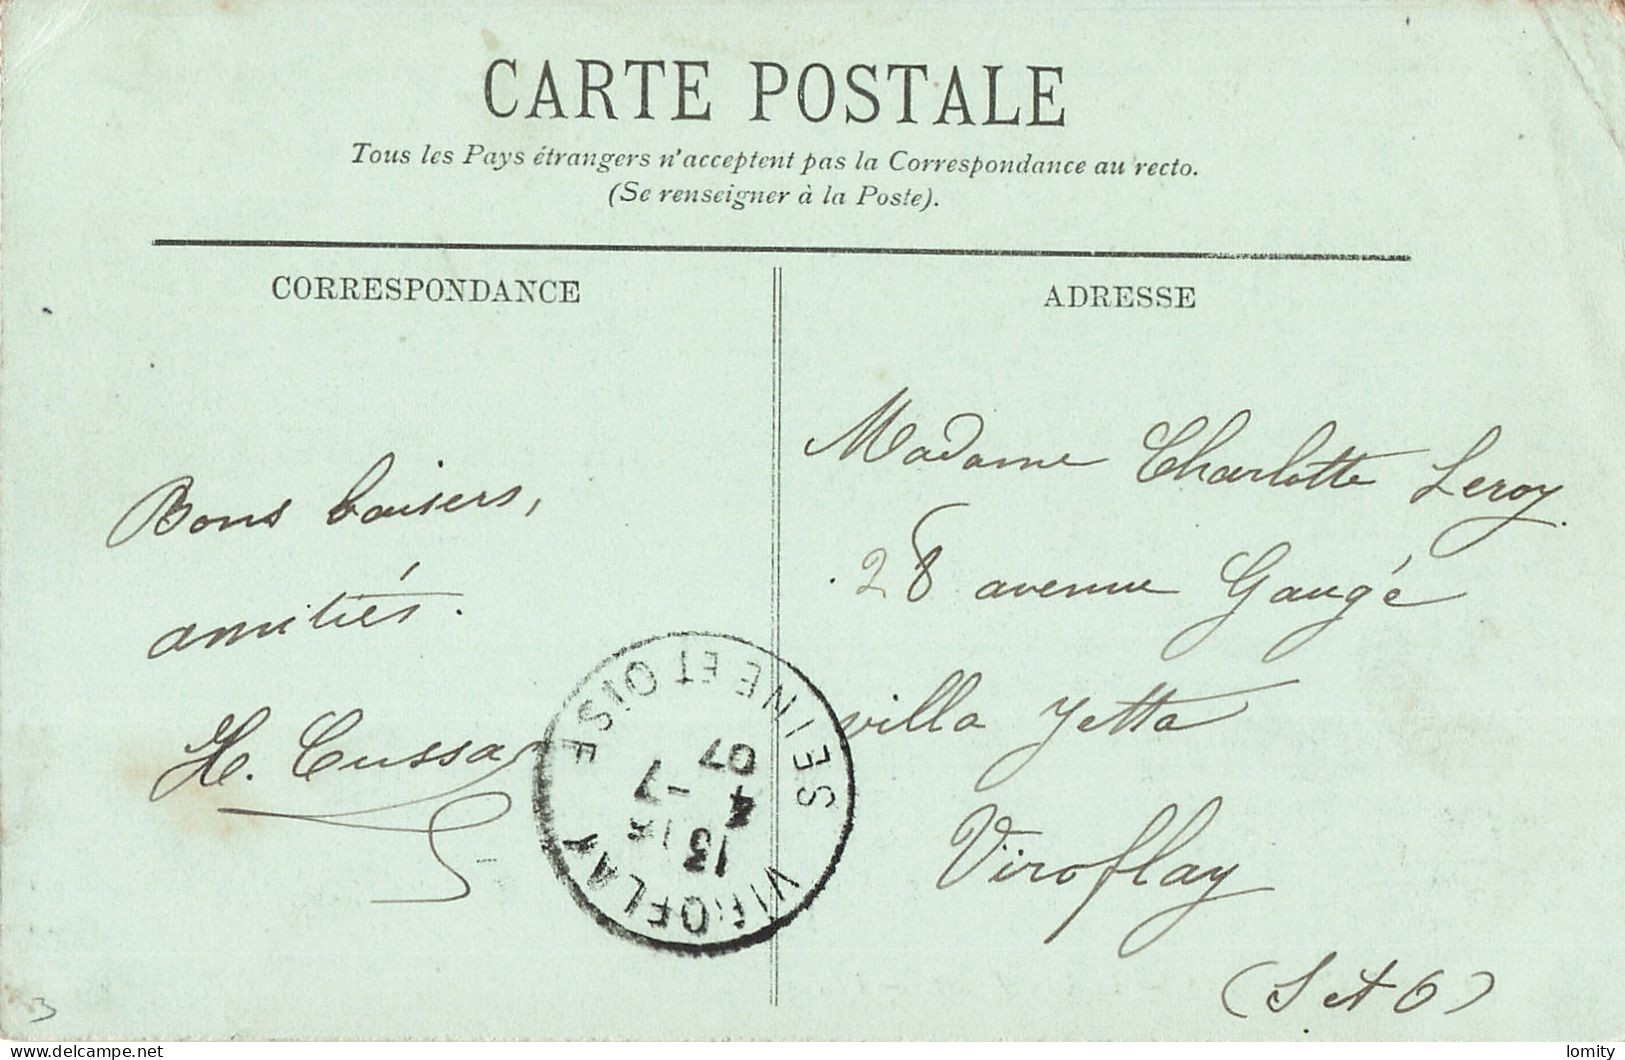 CARTE POSTALE
Tous les Pays étrangers n'acceptent pas la Correspondance au recto.
(Se renseigner à la Poste).
CORRESPONDANCE
Bons baisers,
amitiés.
H. Cussac
ADRESSE
Madame Charlotte Leroy
28 avenue Gaugé
villa Yetta
Viroflay
(S et O)
VIROFLAY
SEINE ET OISE
13
4 -7
07
3
delcampe.net
lomity